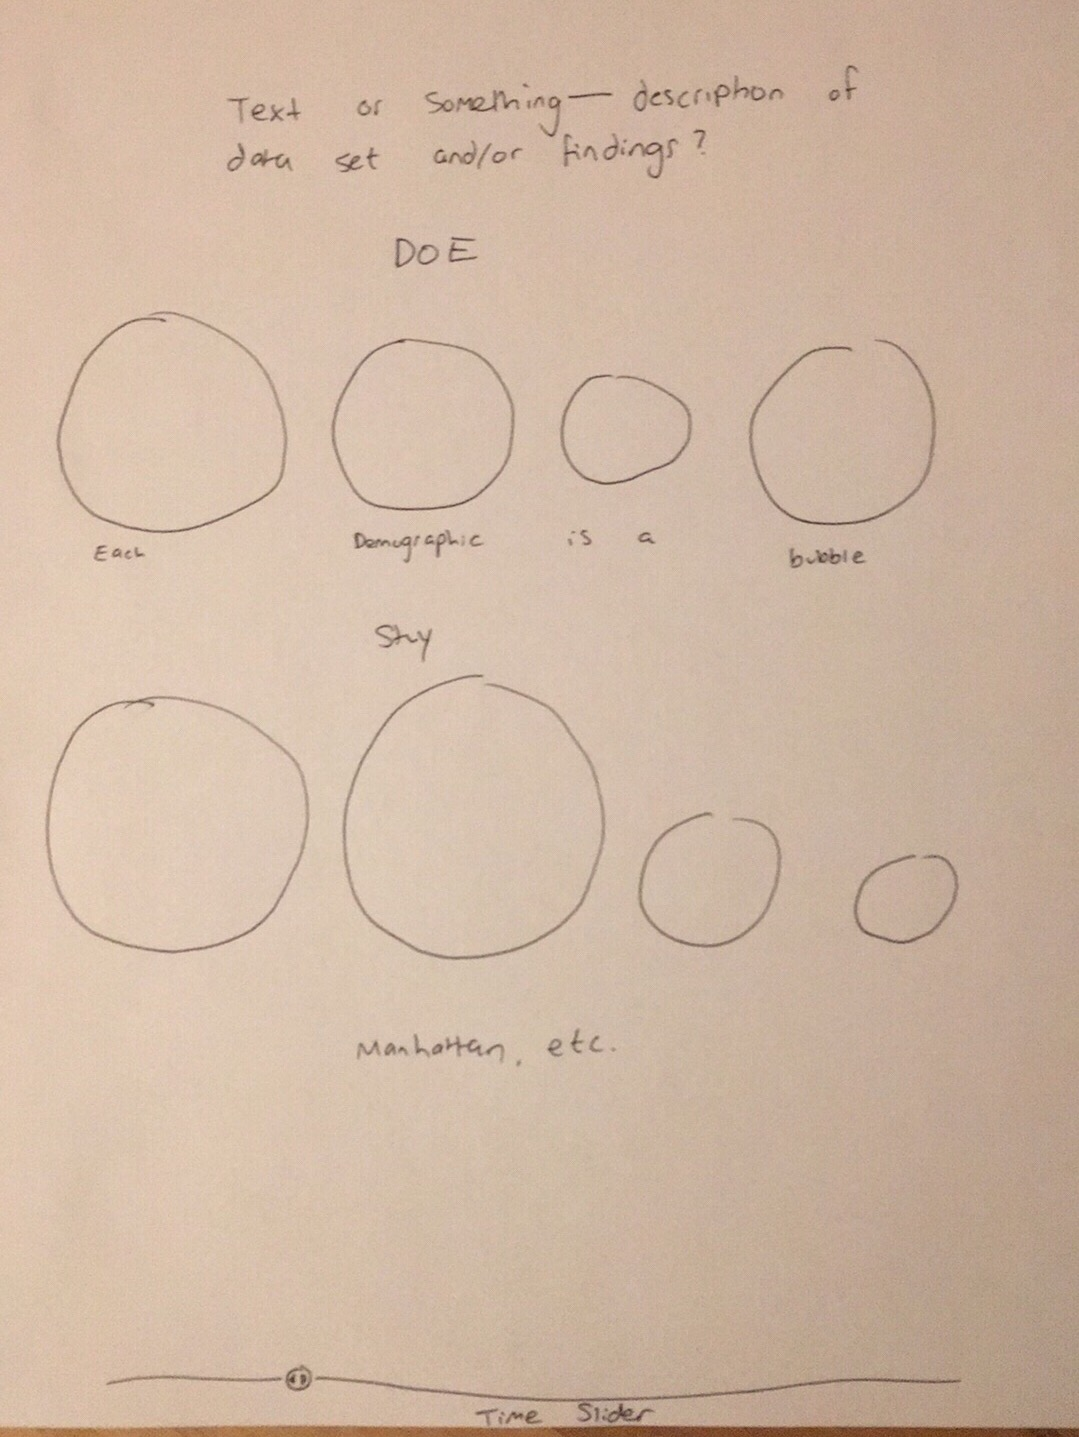 Text or Something — description of
data set and/or findings?
DOE
Each Demographic is a bubble
Stuy
Manhattan, etc.
Time Slider